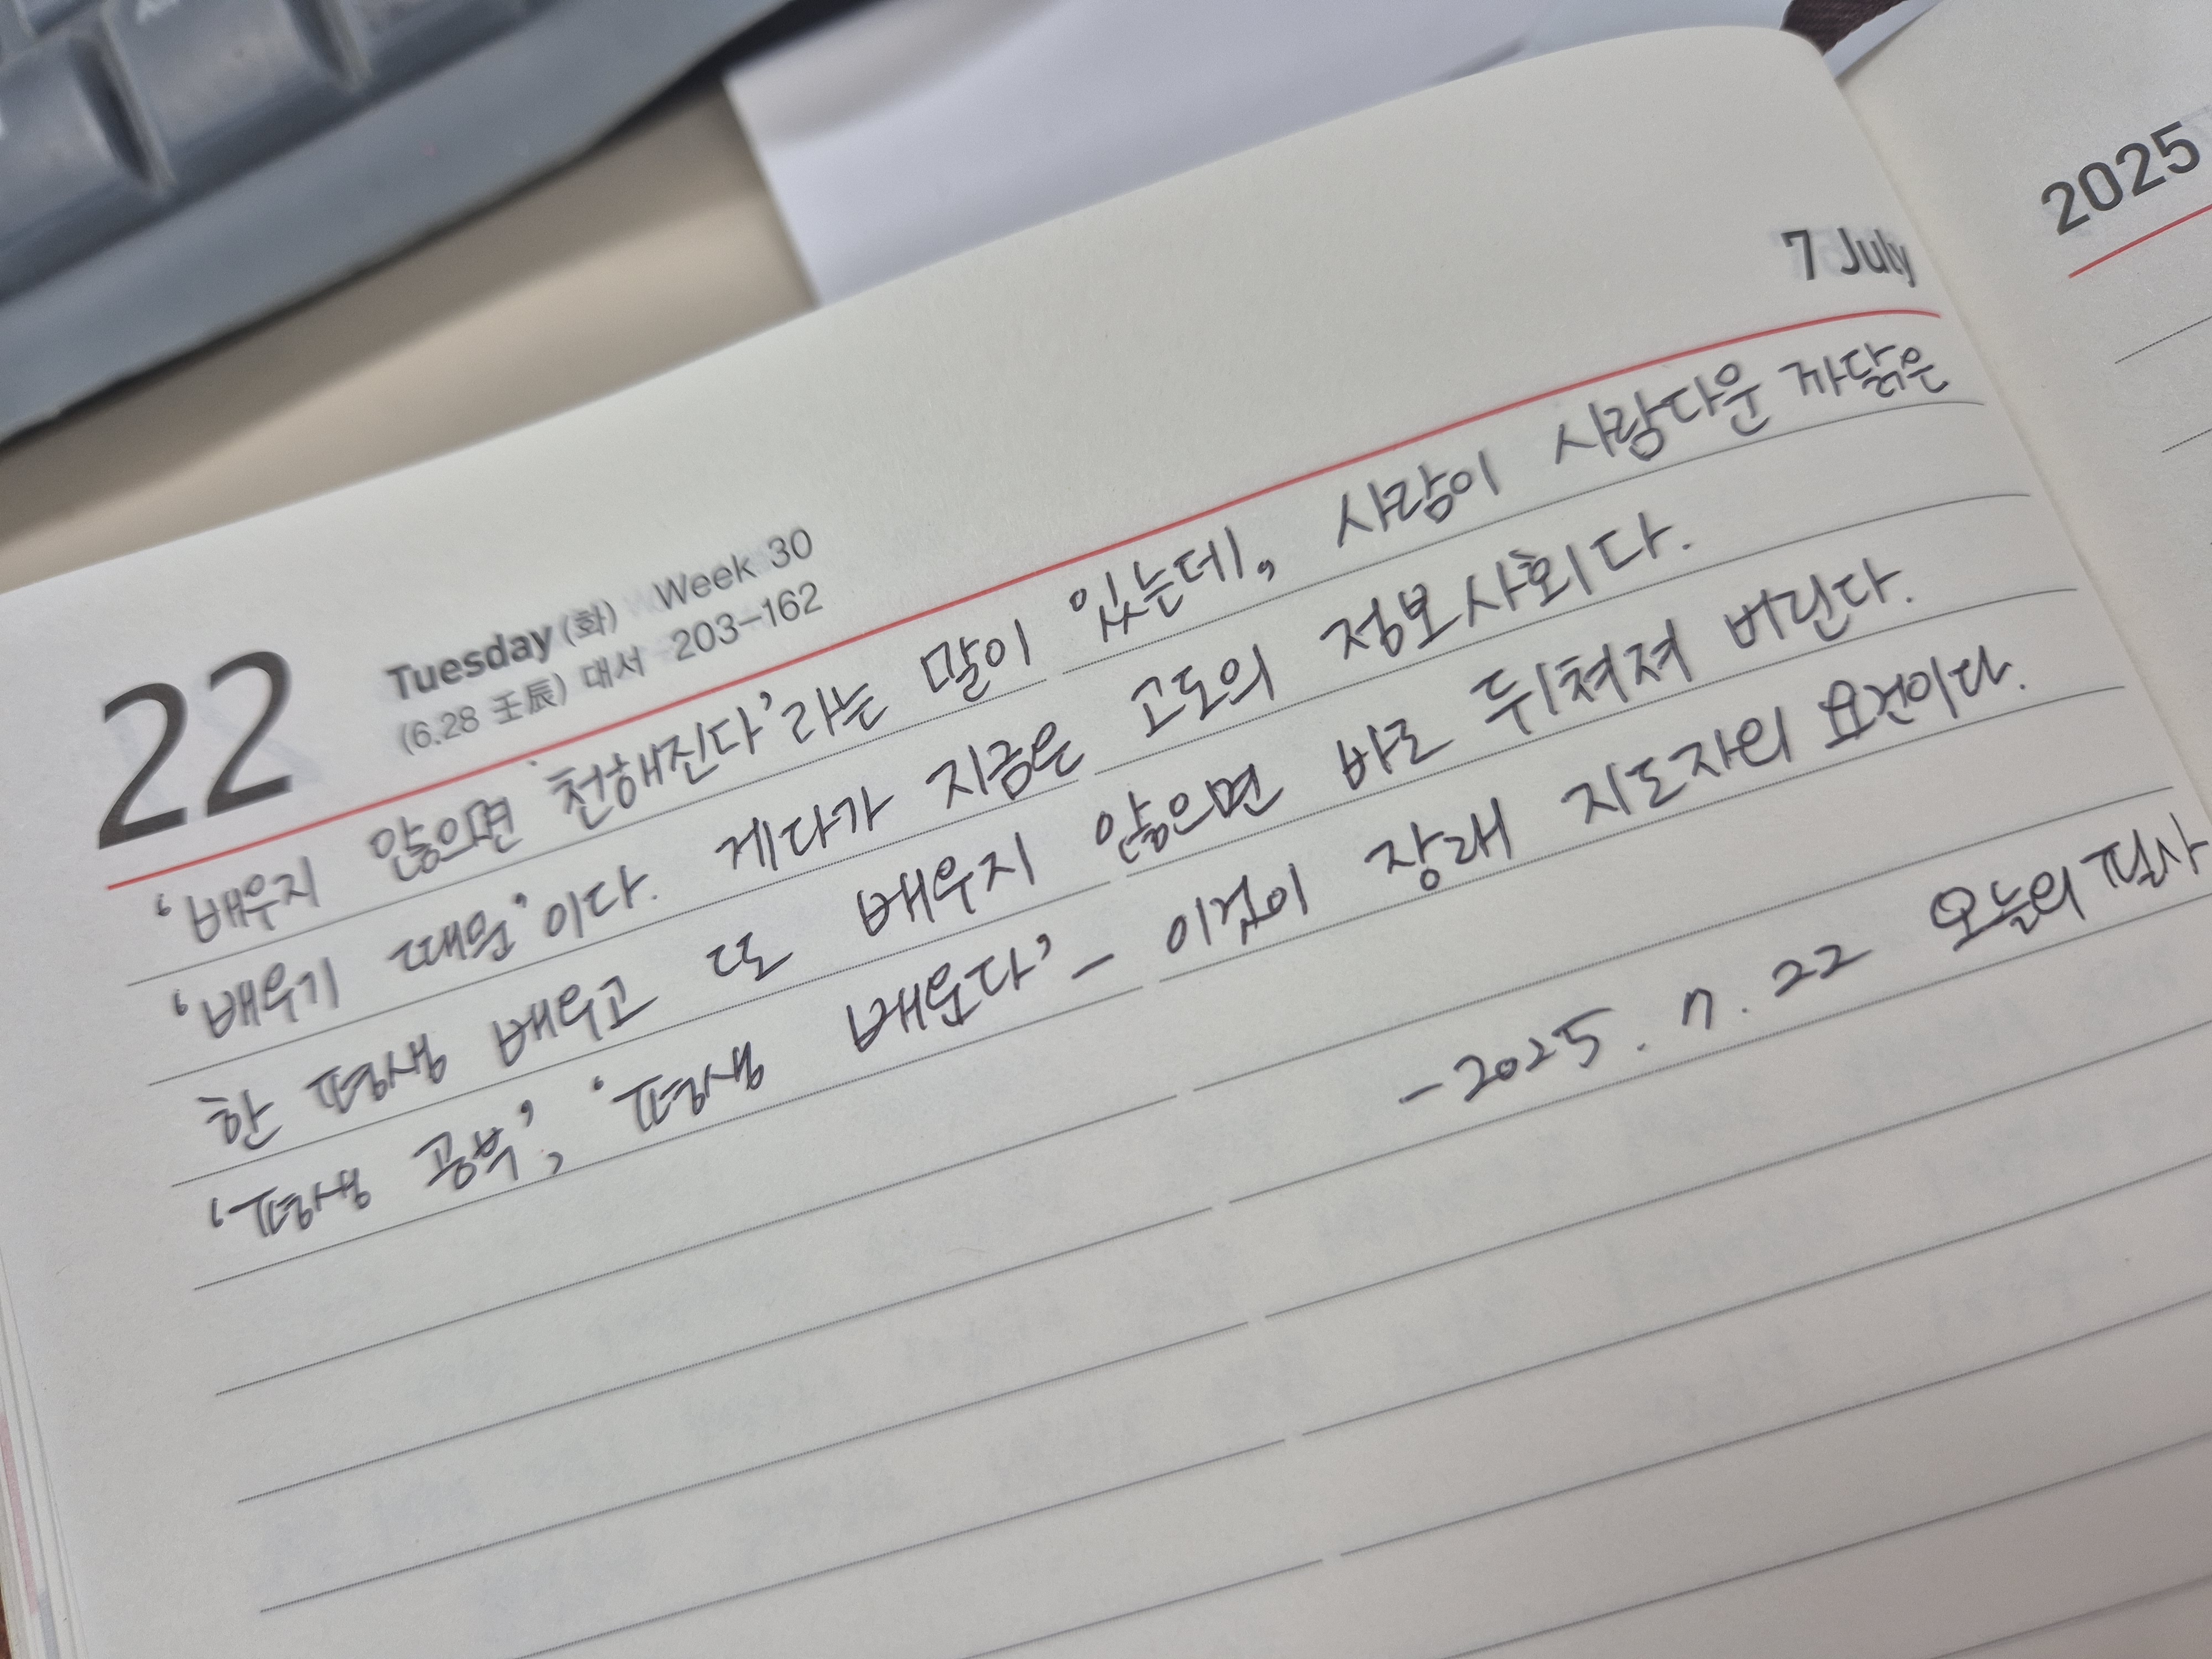 2025
7 July
22 Tuesday (화) Week 30
(6.28 壬辰) 대서 203-162
'배우지 않으면 천해진다'라는 말이 있는데, 사람이 사람다운 까닭은
'배우기 때문'이다. 게다가 지금은 고도의 정보사회다.
한 평생 배우고 또 배우지 않으면 바로 뒤쳐져 버린다.
'평생 공부', '평생 배운다' - 이것이 장래 지도자의 요건이다.
- 2025. 7. 22 오늘의 필사